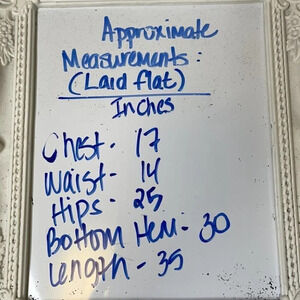 Approximate
Measurements:
(Laid flat)
Inches
Chest - 17
Waist - 14
Hips - 25
Bottom Hem - 30
Length - 35